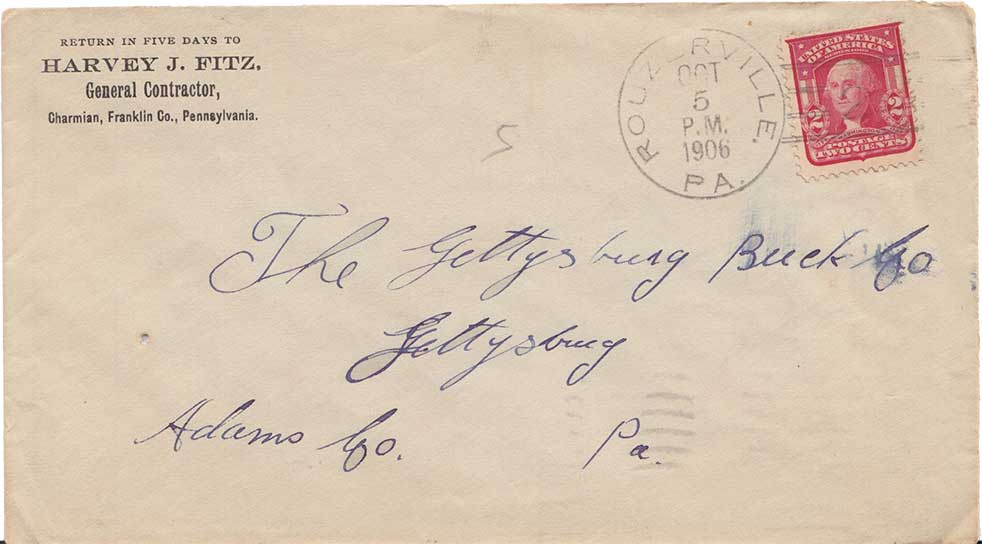 RETURN IN FIVE DAYS TO
HARVEY J. FITZ,
General Contractor,
Charmian, Franklin Co., Pennsylvania.
ROUZERVILLE.
OCT
5
P.M.
1906
PA.
UNITED STATES
OF AMERICA
2 2
POSTAGE
TWO CENTS
5
The Gettysburg Buck Co
Gettysburg
Adams Co. Pa.